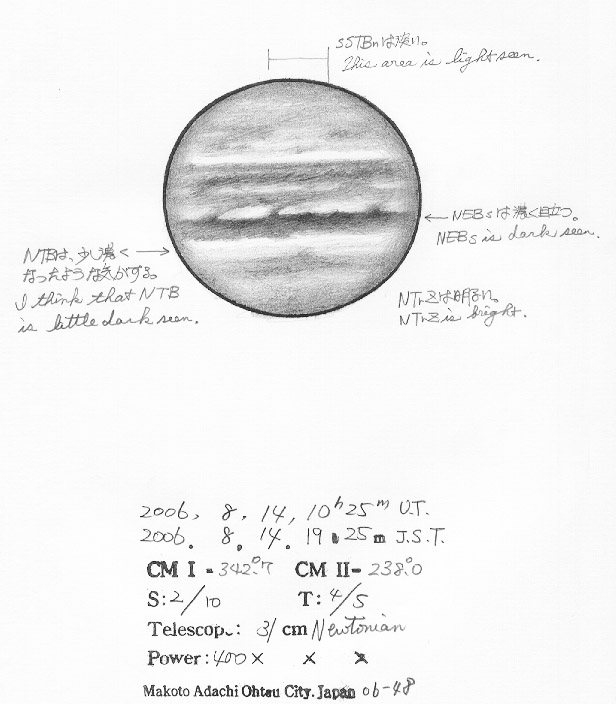 SSTBnは淡い。
This area is light seen.
NEBsは濃く目立つ。
NEBs is dark seen.
NTBは、少し濃く
なったような気がする。
I think that NTB
is little dark seen.
NTrZは明るい。
NTrZ is bright.
2006, 8, 14, 10h 25m U.T.
2006. 8. 14. 19 h 25 m J.S.T.
CM I - 342°.7 CM II- 238°.0
S: 2/10 T: 4/5
Telescop.: 31 cm Newtonian
Power: 400× × ×
Makoto Adachi Ohtsu City. Japan 06-48